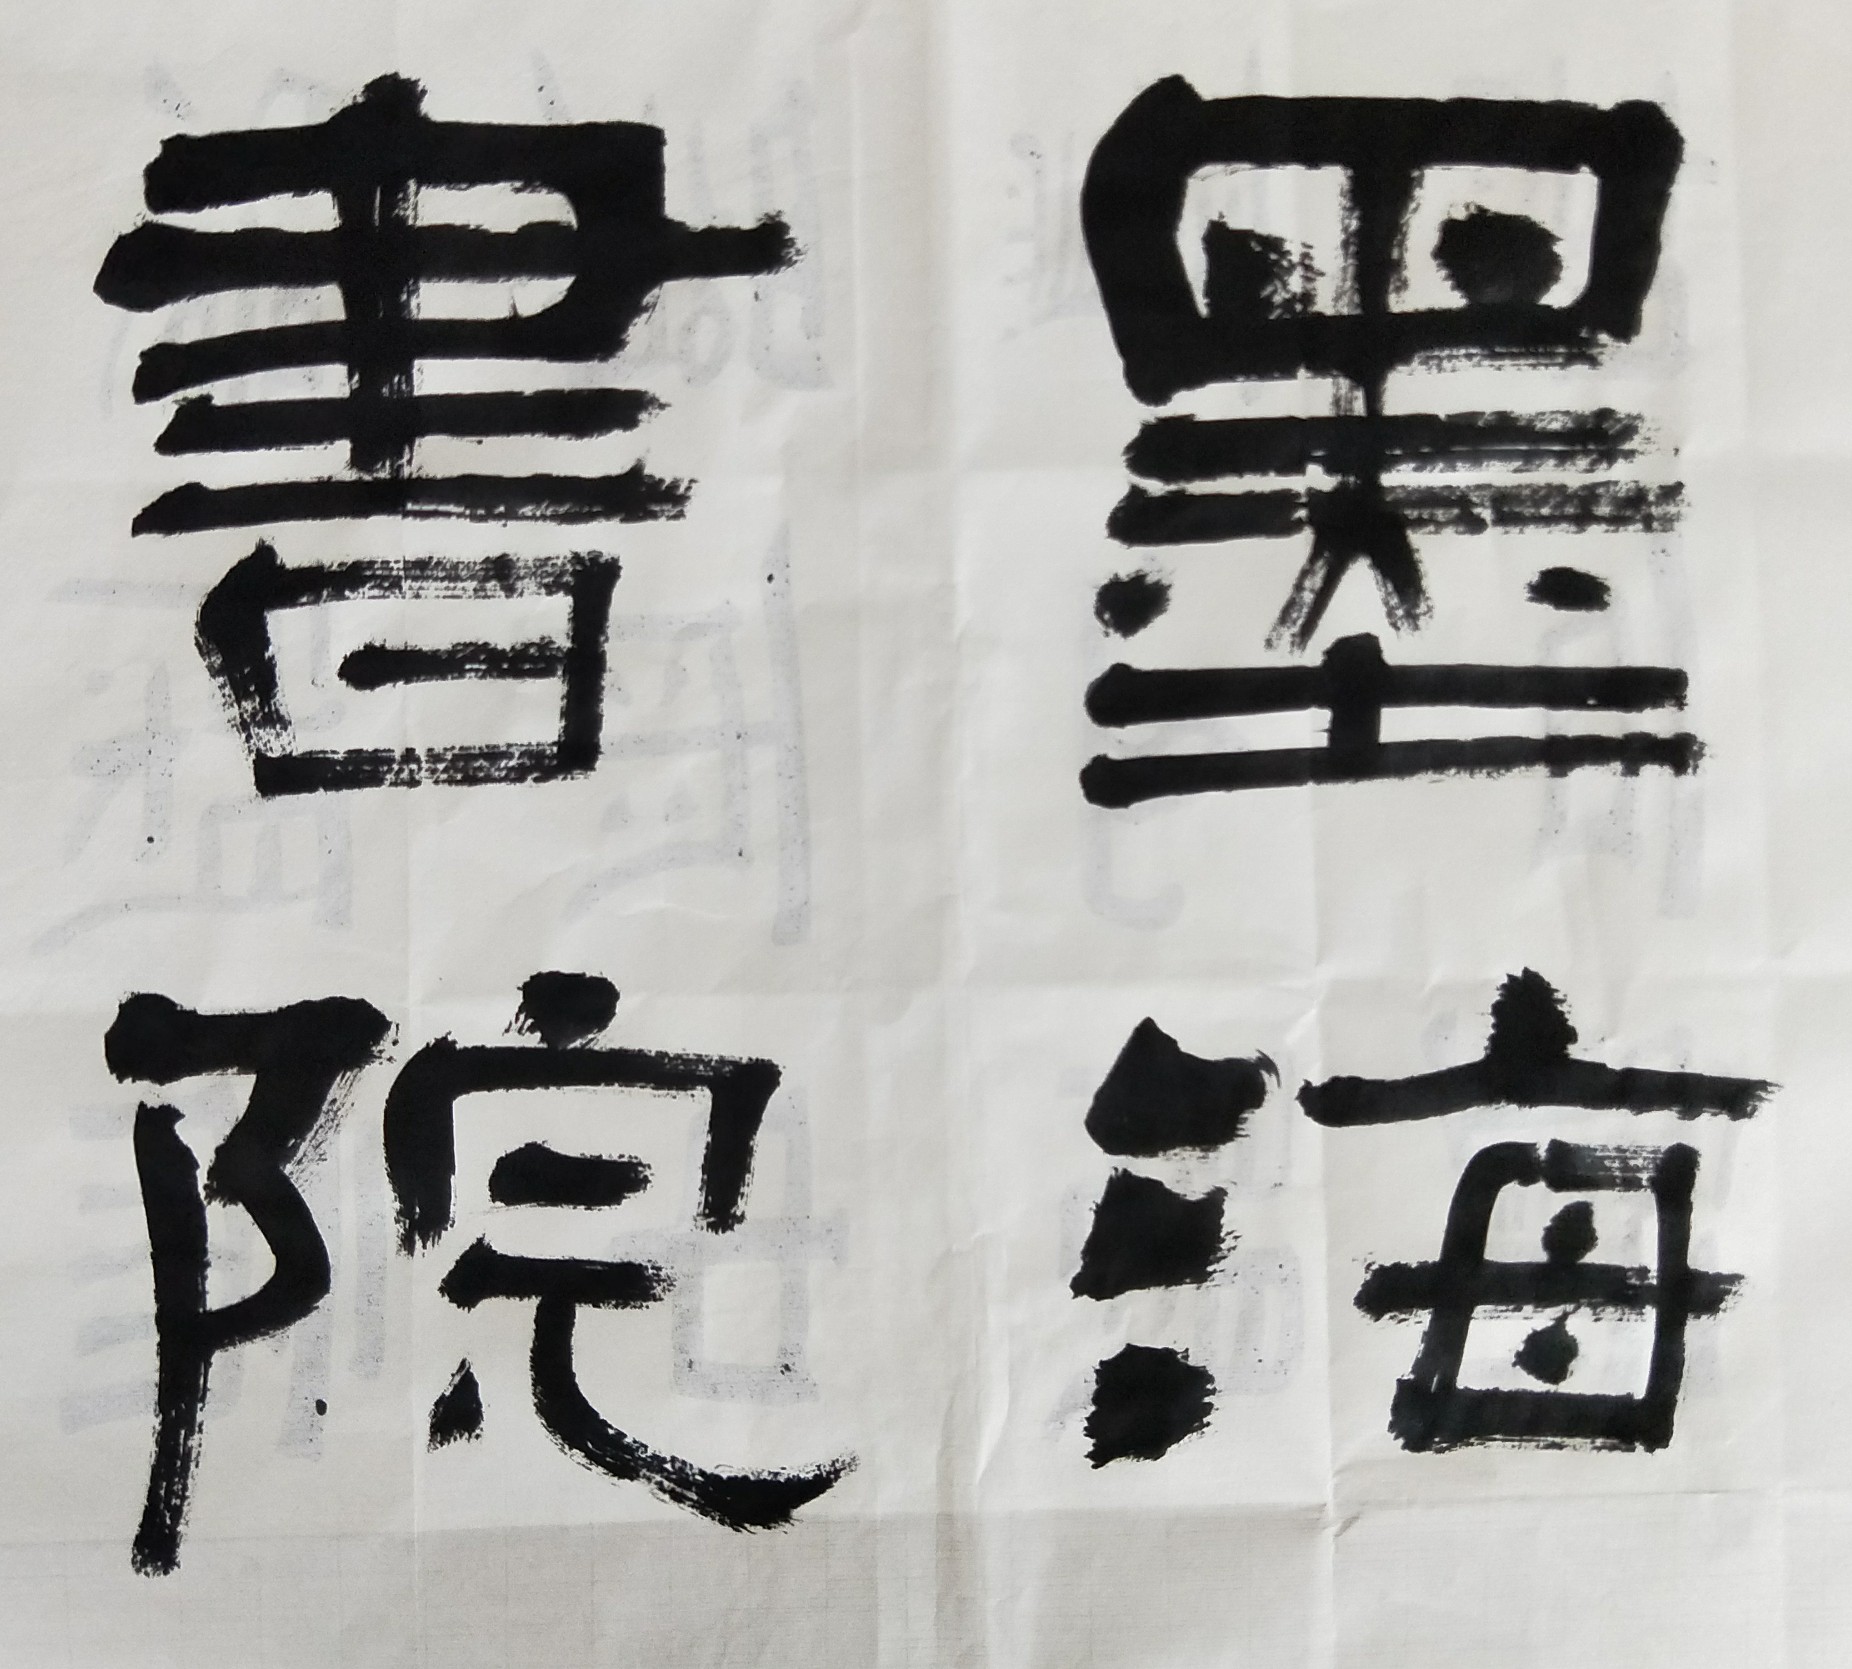 墨海
書院